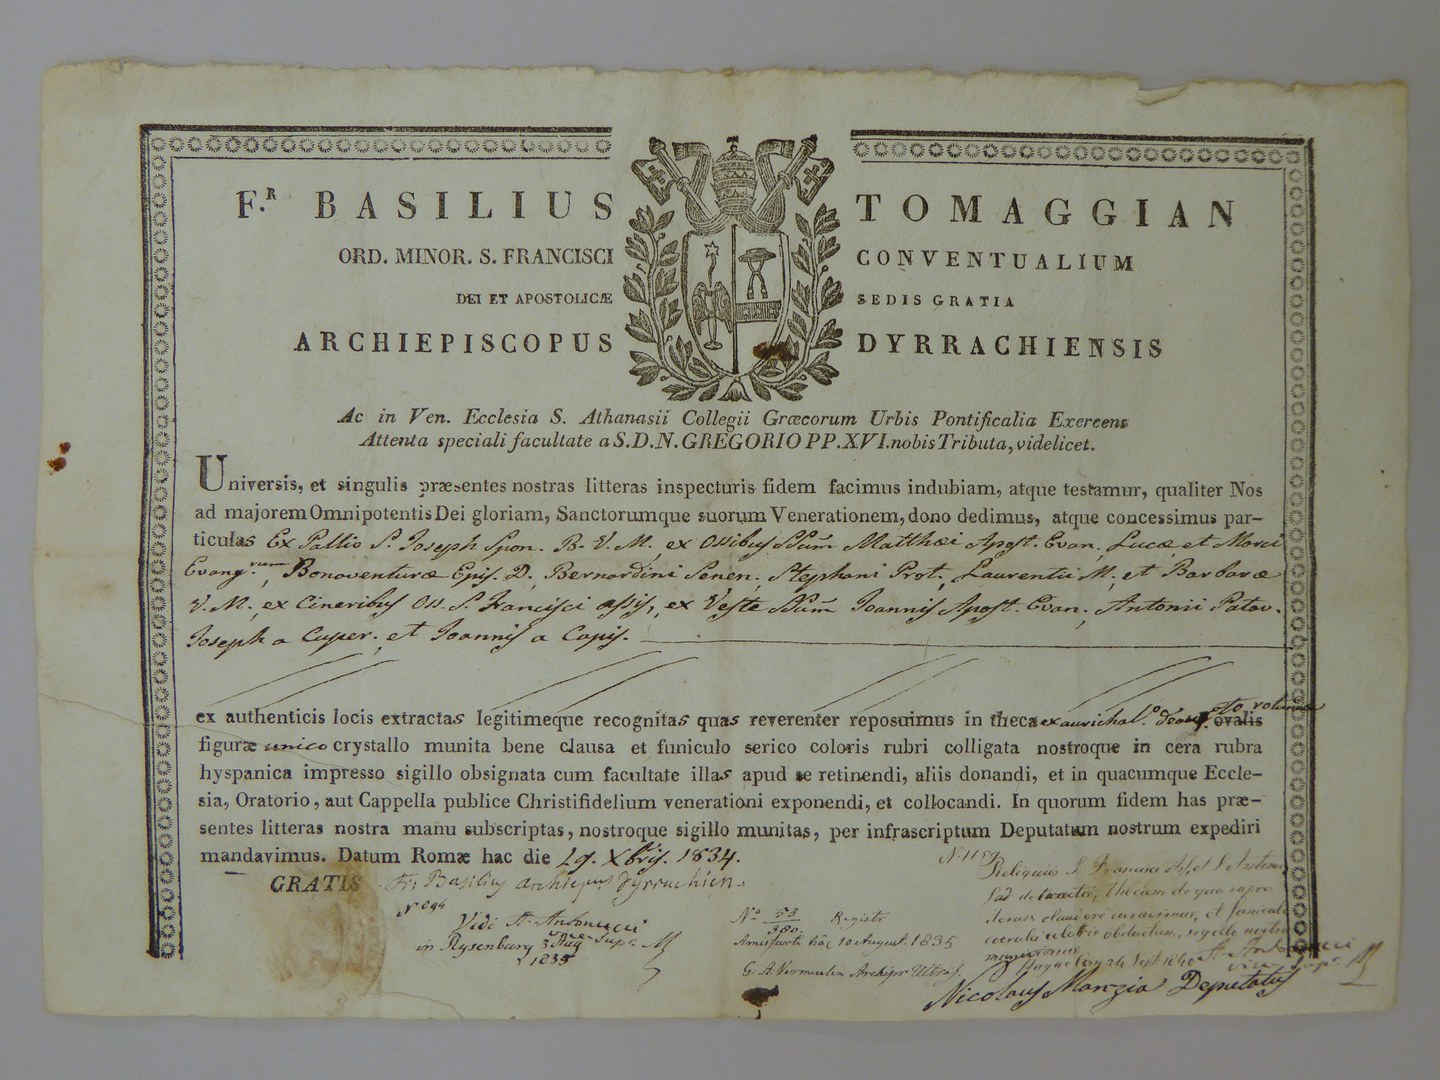 F.R BASILIUS TOMAGGIAN
ORD. MINOR. S. FRANCISCI CONVENTUALIUM
DEI ET APOSTOLICÆ SEDIS GRATIA
ARCHIEPISCOPUS DYRRACHIENSIS
Ac in Ven. Ecclesia S. Athanasii Collegii Græcorum Urbis Pontificalia Exercens
Attenta speciali facultate a S.D.N. GREGORIO PP. XVI. nobis Tributa, videlicet.
Universis, et singulis præsentes nostras litteras inspecturis fidem facimus indubiam, atque testamur, qualiter Nos
ad majorem Omnipotentis Dei gloriam, Sanctorumque suorum Venerationem, dono dedimus, atque concessimus par-
ticulas Ex Pallio S. Joseph Spon. B. V. M., ex Ossibus SSum Matthæi Apost. Evan. Lucæ, et Marci
Evang.rum, Bonaventuræ Epis. D., Bernardini Senen., Stephani Prot., Laurentii M., et Barbaræ
V. M., ex Cineribus Oss. S. Francisci Assis., ex Veste SSum Joannis Apost. Evan., Antonii Patav.
Joseph a Cuper., et Joannis a Capis.
ex authenticis locis extractas legitimeque recognitas quas reverenter reposuimus in theca ex aurichal.o deaur. ovalis
figuræ unico crystallo munita bene clausa et funiculo serico coloris rubri colligata nostroque in cera rubra
hyspanica impresso sigillo obsignata cum facultate illas apud se retinendi, aliis donandi, et in quacumque Eccle-
sia, Oratorio, aut Cappella publice Christifidelium venerationi exponendi, et collocandi. In quorum fidem has præ-
sentes litteras nostra manu subscriptas, nostroque sigillo munitas, per infrascriptum Deputatum nostrum expediri
mandavimus. Datum Romæ hac die 19. Xbris. 1834.
GRATIS Fr. Basilius Archiepus Dyrrachien.
Vidi A. Antonucci
vice Supr.
in Rysenburg 3 Aug
1835
N.o 53/380. Registr
Amisfurti hâc 10 August. 1835
G. A. Vermeulen Archipr Ultraj.
N. 1187
Reliquiis S. Francisci As., et S. Antonii
Pad. detractis, thecam denuo supra
claudere curavimus, et funiculo
coerulei coloris obductam, sigillo nostro
munivimus
Hagae Com. 24 Sept. 1840 A. Antonucci
vice Supr.
Nicolaus Manzia Deputatus